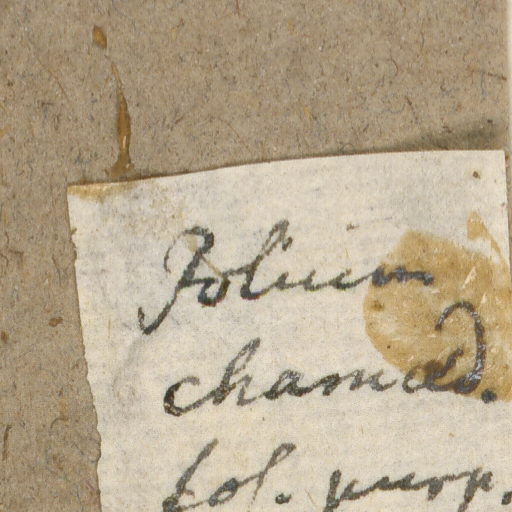 Polium
chamæd.
fol. purp.